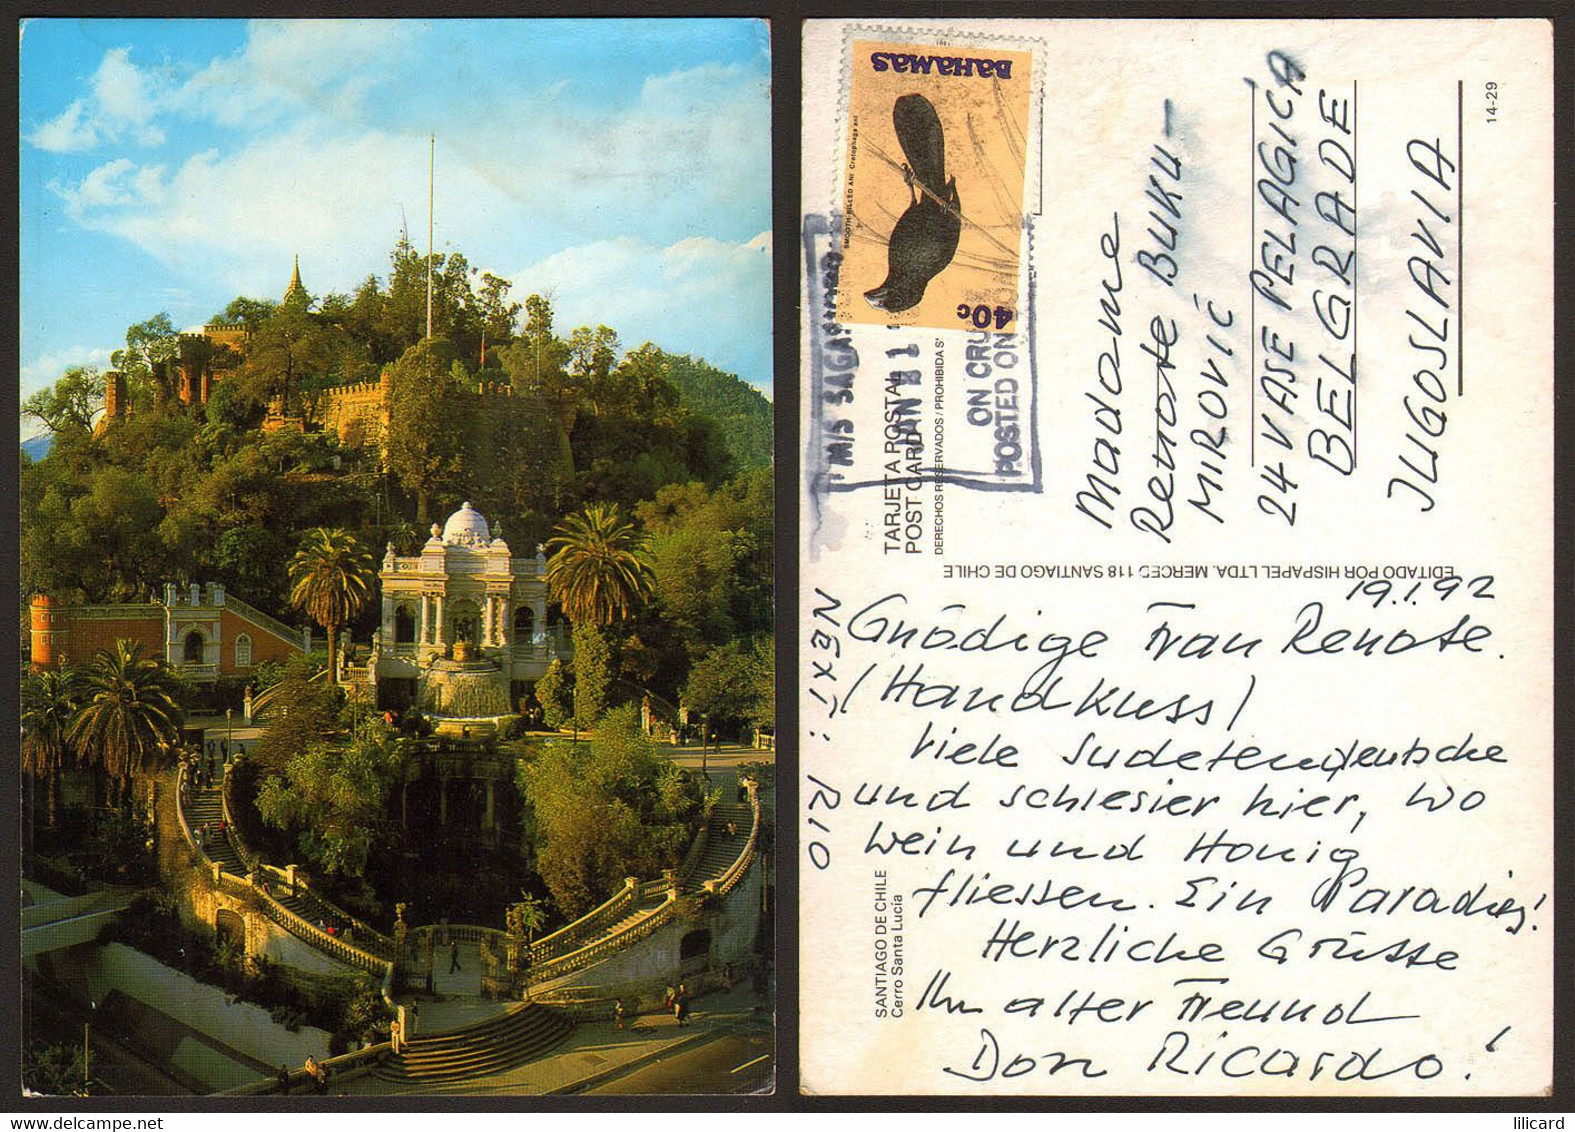 BAHAMAS
1991
SMOOTH-BILLED ANI Crotophaga ani
40c
M/S
JAN
ON CRU
POSTED ON
TARJETA POSTAL
POST CARD
DERECHOS RESERVADOS / PROHIBIDA S'
14-29
Madame
Renate BUKU-
MIROVIĆ
24 VASE PELAGIĆA
BELGRADE
JUGOSLAVIA
EDITADO POR HISPAPEL LTDA. MERCED 118 SANTIAGO DE CHILE
NEXT: RIO
SANTIAGO DE CHILE
Cerro Santa Lucía
19.1.92
Gnädige Frau Renate.
(Handkuss)
Viele Sudetendeutsche
und Schlesier hier, wo
Wein und Honig
fliessen. Ein Paradies!
Herzliche Grüsse
Ihr alter Freund
Don Ricardo!
lilicard